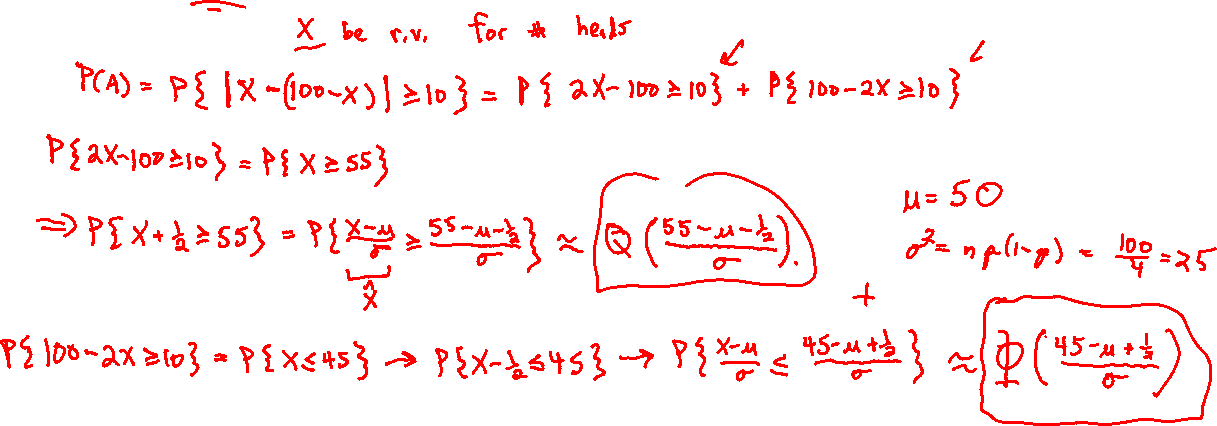 X be r.v. for # heads
P(A) = P{ |X-(100-X)| ≥10 } = P{ 2X-100≥10 } + P{ 100-2X≥10 }
P{2X-100≥10} = P{ X≥55 }
⇒ P{ X+½≥55 } = P{ (X-μ)/σ ≥ (55-μ-½)/σ } ≈ Q ( (55-μ-½)/σ ).
X̂
μ= 50
σ²= np(1-p) = 100/4 =25
+
P{ 100-2X≥10 } = P{ X≤45 } → P{X-½≤45} → P{ (X-μ)/σ ≤ (45-μ+½)/σ } ≈ Φ ( (45-μ+½)/σ )